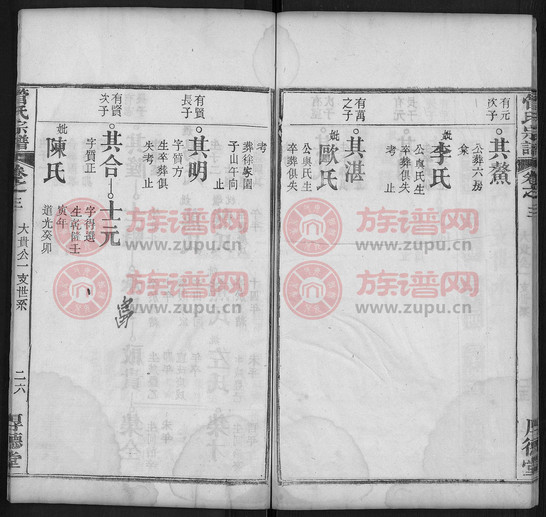 管氏宗譜
卷之三
有元
次子
其鰲
公葬六房
妣李氏
公與氏生
卒葬俱失
有萬
之子
其湛
妣歐氏
公與氏生
卒葬俱失
考
葬徐家園
子山午向
有賢
長子
其明
字質方
生卒葬俱
失考 止
有賢
次子
其合
字質正
妣陳氏
士元
字得選
生乾隆壬
寅年
道光癸卯
管氏宗譜
卷之三
大貴公一支世系
二六
厚德堂
族谱网
www.zupu.cn
族谱网
www.zupu.cn
族谱网
www.zupu.cn
族谱网
www.zupu.cn